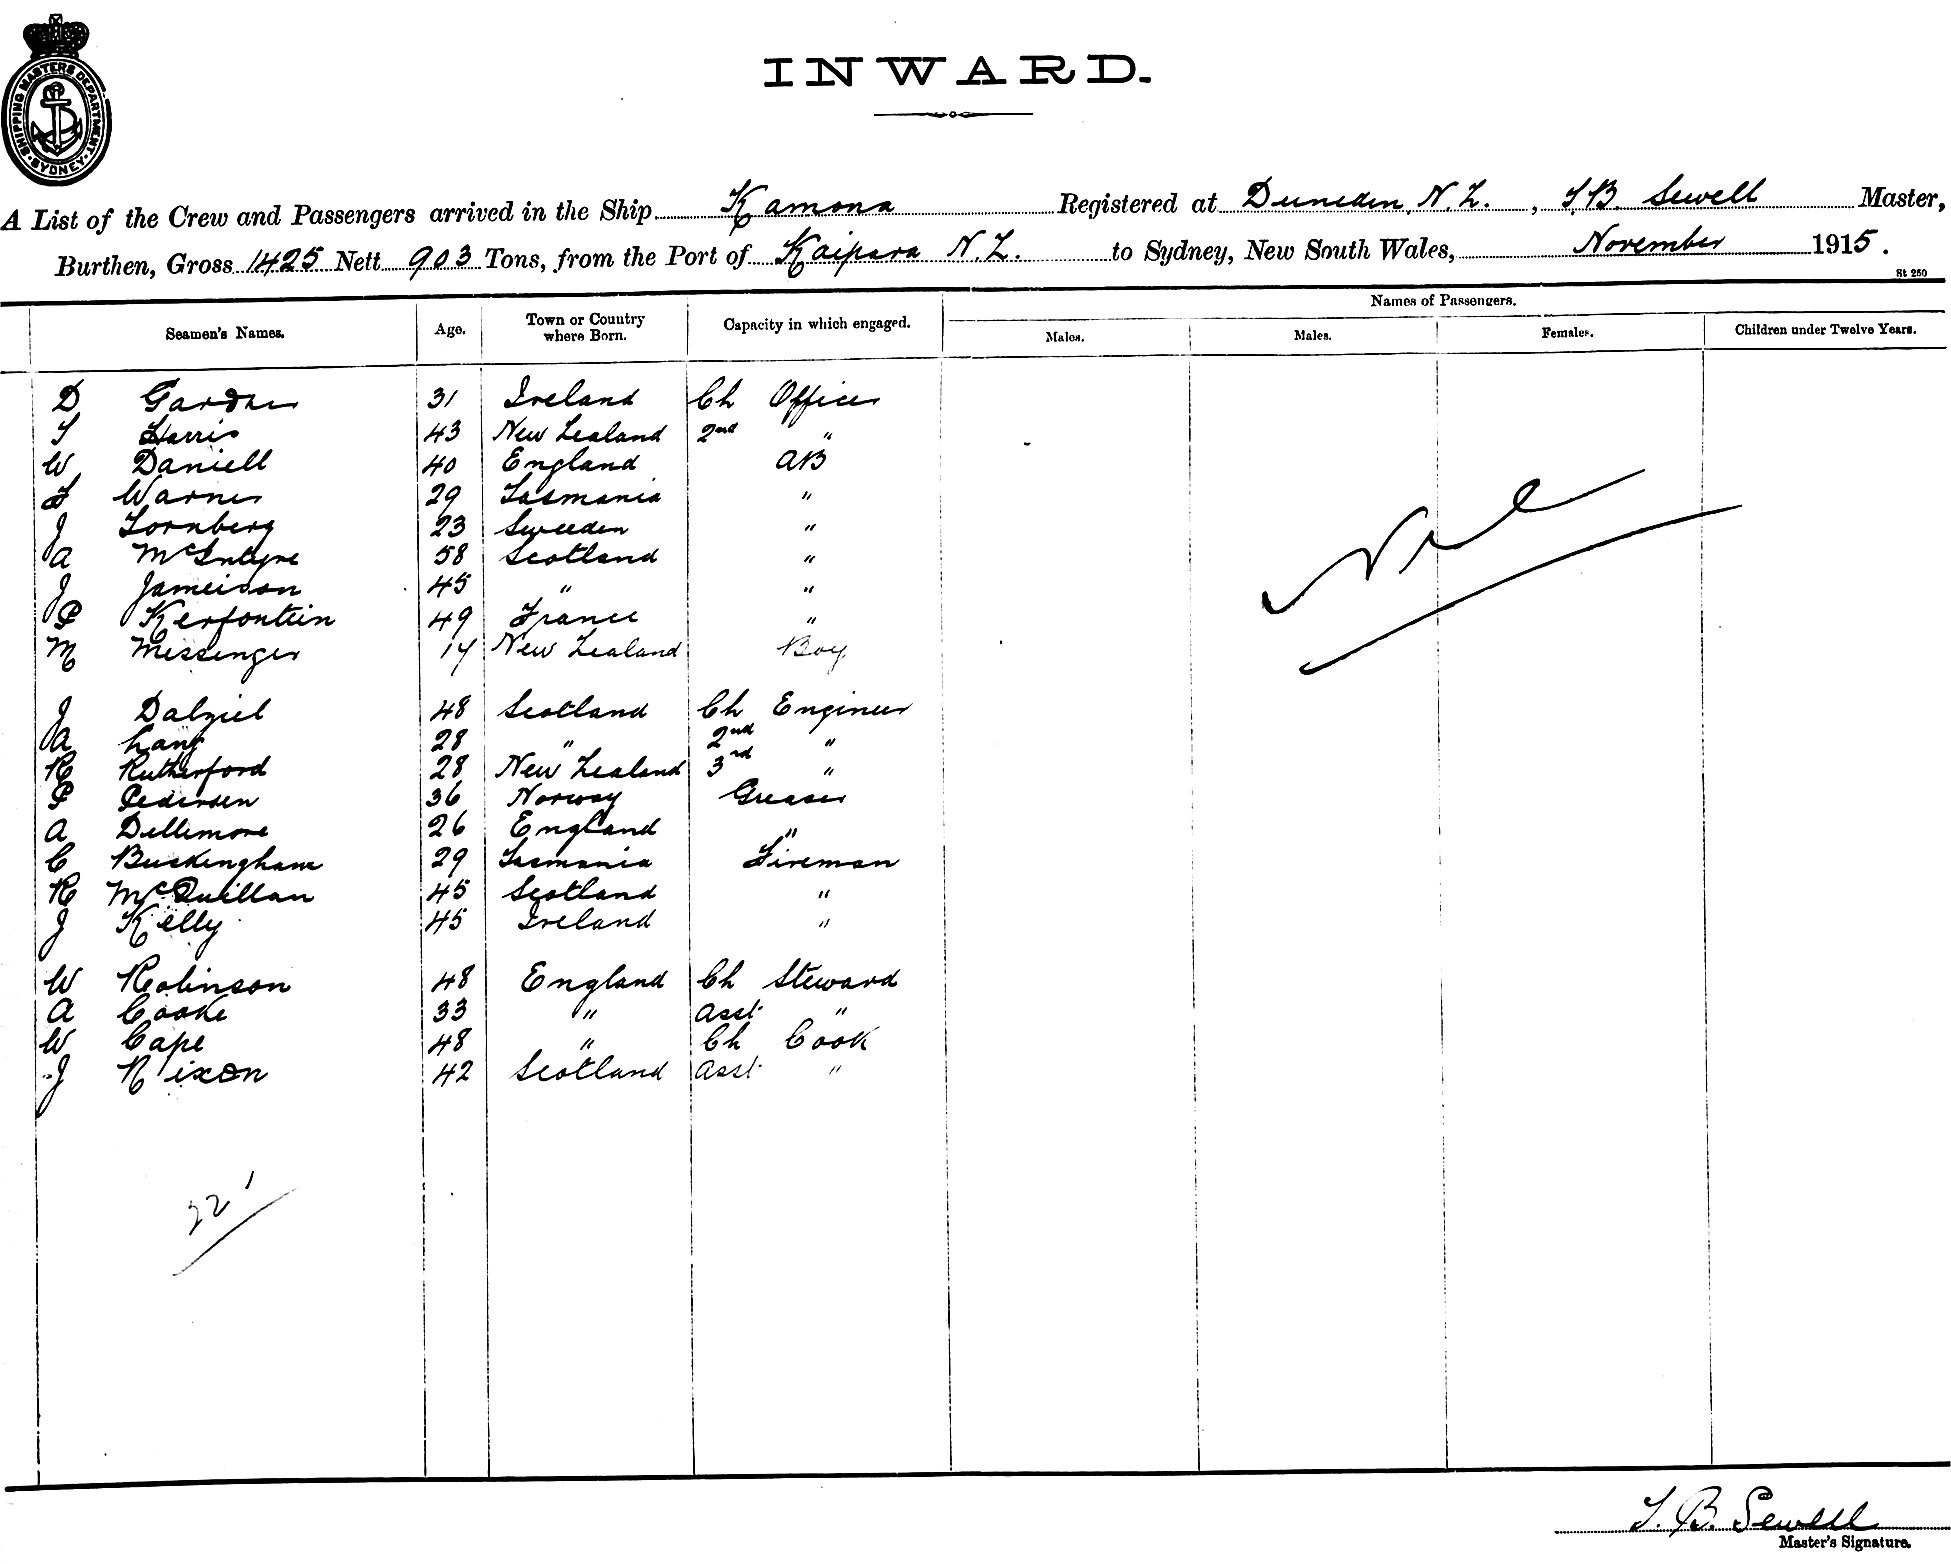 SHIPPING MASTERS DEPARTMENT
SYDNEY
INWARD.
A List of the Crew and Passengers arrived in the Ship Kamona Registered at Duneden, N.Z. , S.B. Sewell Master,
Burthen, Gross 1425 Nett 903 Tons, from the Port of Kaipara N.Z. to Sydney, New South Wales, November 1915.
St 250
Names of Passengers.
Seamen's Names. Age. Town or Country where Born. Capacity in which engaged. Males. Males. Females. Children under Twelve Years.
D Gardner 31 Ireland Ch Officer
S Harris 43 New Zealand 2nd "
W Daniell 40 England AB
F Warner 29 Tasmania "
J Tornberg 23 Sweeden "
A McIntyre 58 Scotland "
J Jameison 45 " "
P Kerfontein 49 France "
M Messenger 14 New Zealand Boy
Nil
J Dalziel 48 Scotland Ch Engineer
A Lang 28 " 2nd "
R Rutherford 28 New Zealand 3rd "
P Pedersen 36 Norway Greaser
A Dellimore 26 England "
C Buckingham 29 Tasmania Fireman
R McQuillan 45 Scotland "
J Kelly 45 Ireland "
W Robinson 48 England Ch Steward
A Cooke 33 " Asst "
W Cape 48 " Ch Cook
J Nixon 42 Scotland Asst "
22
S. B. Sewell
Master's Signature.